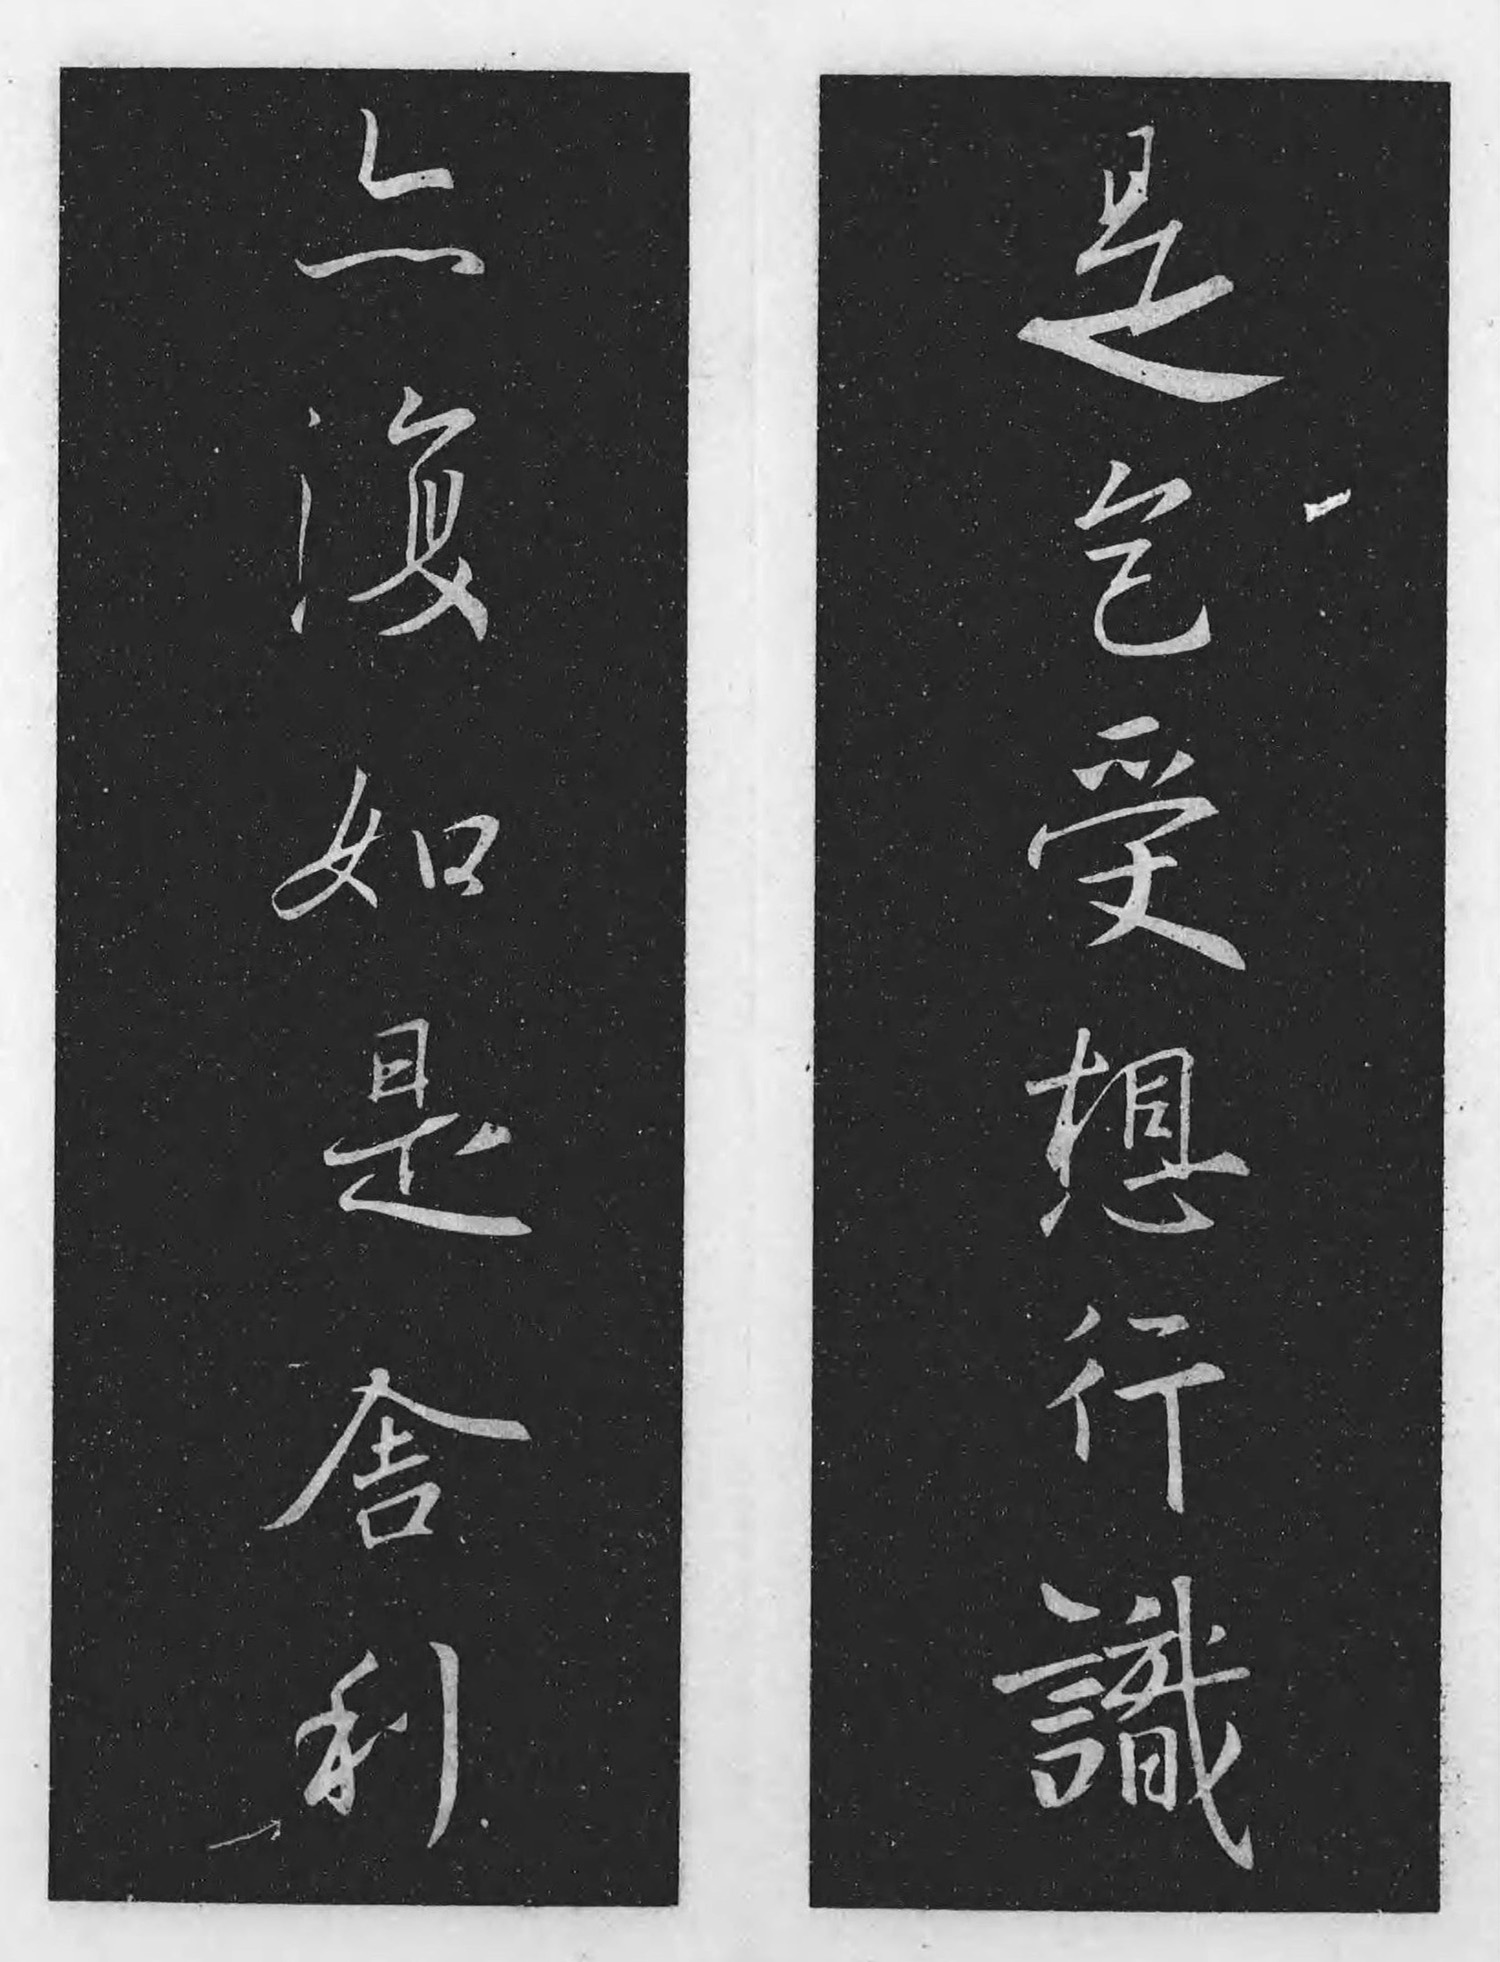 是色受想行識
亦復如是舍利